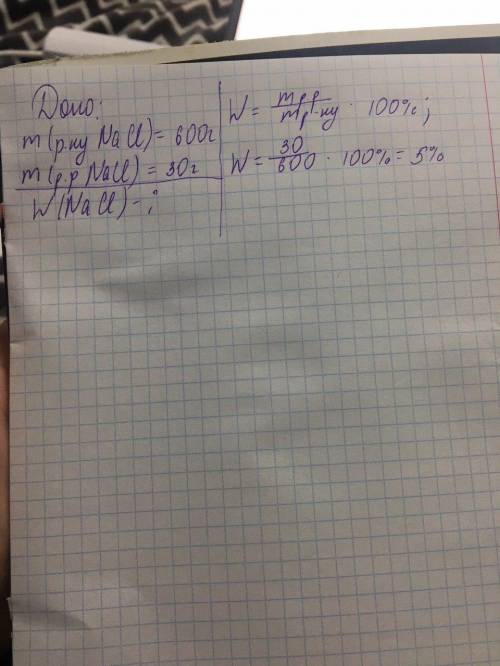 Дано:
m(р.ну NaCl) = 600г
m(р.р NaCl) = 30г
W(NaCl) - ?
W = mрр / mр-ну · 100%;
W = 30 / 600 · 100% = 5%